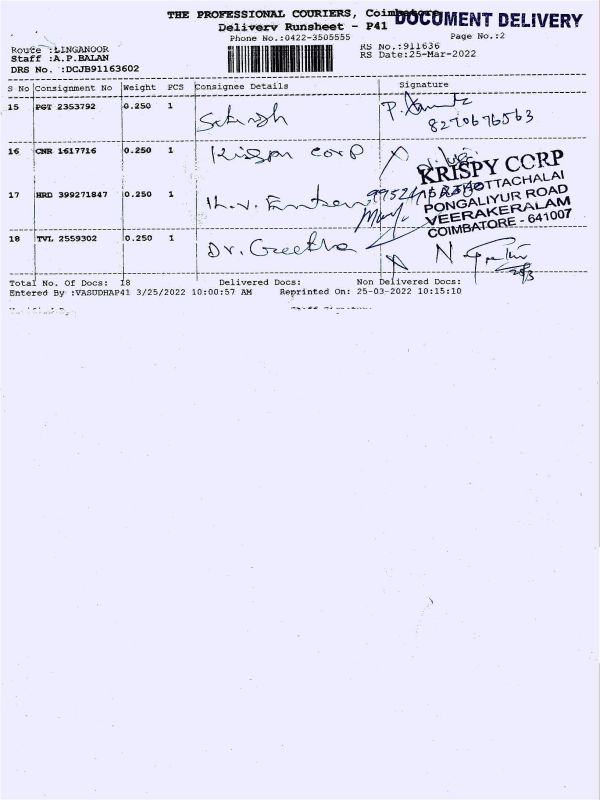 THE PROFESSIONAL COURIERS, Coimbatore
DOCUMENT DELIVERY
Delivery Runsheet - P41
Phone No.:0422-3505555
Page No.:2
Route :LINGANOOR
RS No.:911636
Staff :A.P.BALAN
RS Date:25-Mar-2022
DRS No. :DCJB91163602
S No Consignment No Weight PCS Consignee Details Signature
15 PGT 2353792 0.250 1
8270676563
16 CNR 1617716 0.250 1 Krispy corp
KRISPY CORP
17 HRD 399271847 0.250 1
PONGALIYUR ROAD
VEERAKERALAM
COIMBATORE - 641007
18 TVL 2559302 0.250 1 Dr. Geetha
Total No. Of Docs: 18 Delivered Docs: Non Delivered Docs:
Entered By :VASUDHAP41 3/25/2022 10:00:57 AM Reprinted On: 25-03-2022 10:15:10